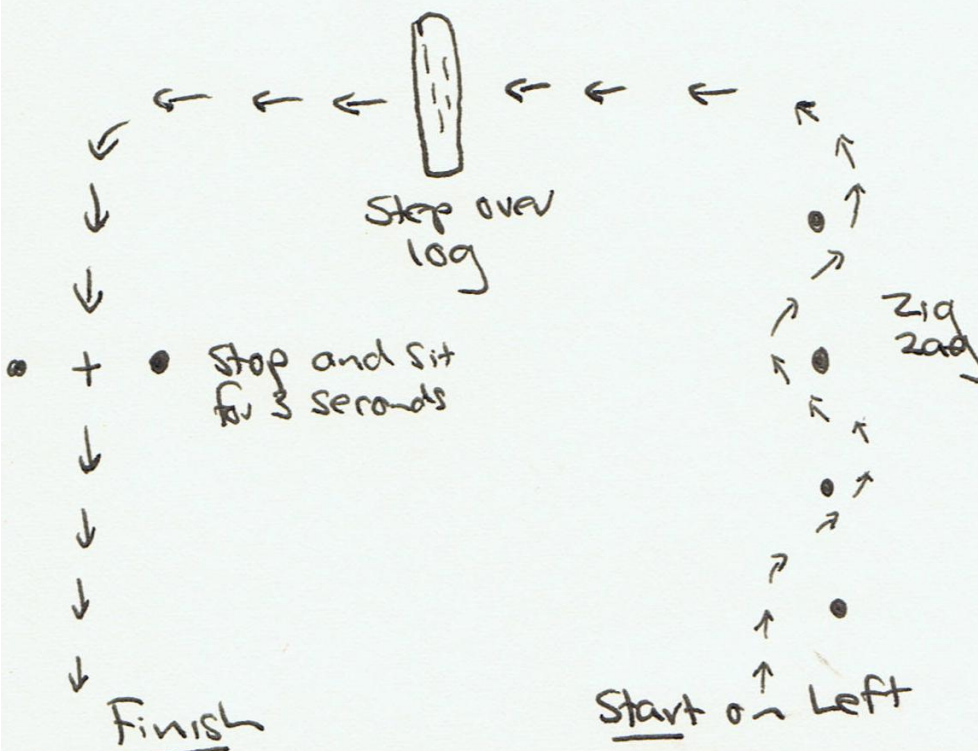 Step over
log
Zig
Zag
Stop and sit
for 3 seconds
Finish
Start on Left